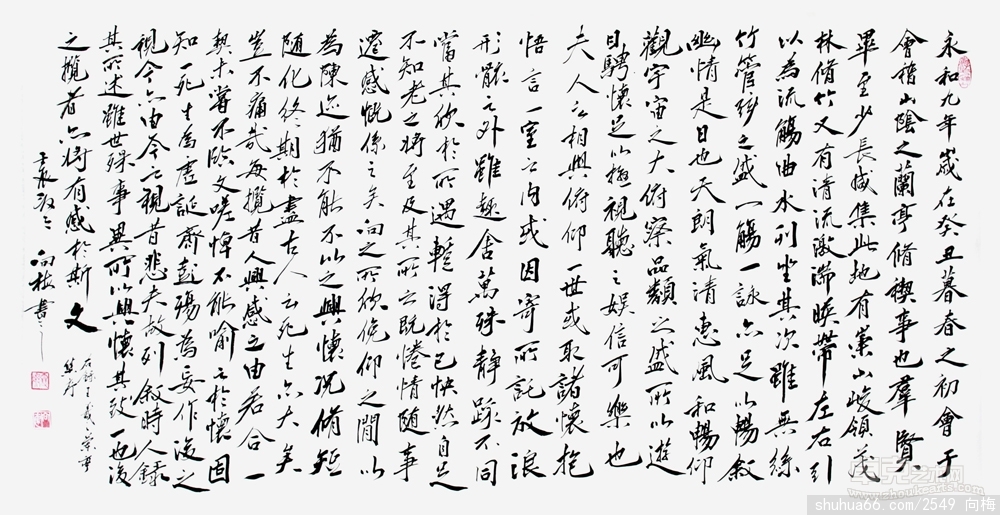 永和九年歲在癸丑暮春之初會于
會稽山陰之蘭亭脩禊事也羣賢
畢至少長咸集此地有崇山峻領茂
林脩竹又有清流激湍暎帶左右引
以為流觴曲水列坐其次雖無絲
竹管弦之盛一觴一詠亦足以暢敘
幽情是日也天朗氣清惠風和暢仰
觀宇宙之大俯察品類之盛所以遊
目騁懷足以極視聽之娛信可樂也
夫人之相與俯仰一世或取諸懷抱
悟言一室之內或因寄所託放浪
形骸之外雖趣舍萬殊靜躁不同
當其欣於所遇暫得於己怏然自足
不知老之將至及其所之既惓情隨事
遷感慨係之矣向之所欣俛仰之間以
為陳迹猶不能不以之興懷況脩短
隨化終期於盡古人云死生亦大矣
豈不痛哉每攬昔人興感之由若合一
契未嘗不臨文嗟悼不能喻之於懷固
知一死生為虛誕齊彭殤為妄作後之
視今亦由今之視昔悲夫故列敘時人錄
其所述雖世殊事異所以興懷其致一也後
之攬者亦將有感於斯文
壬辰 向梅書
shuhua66.com/2549 向梅